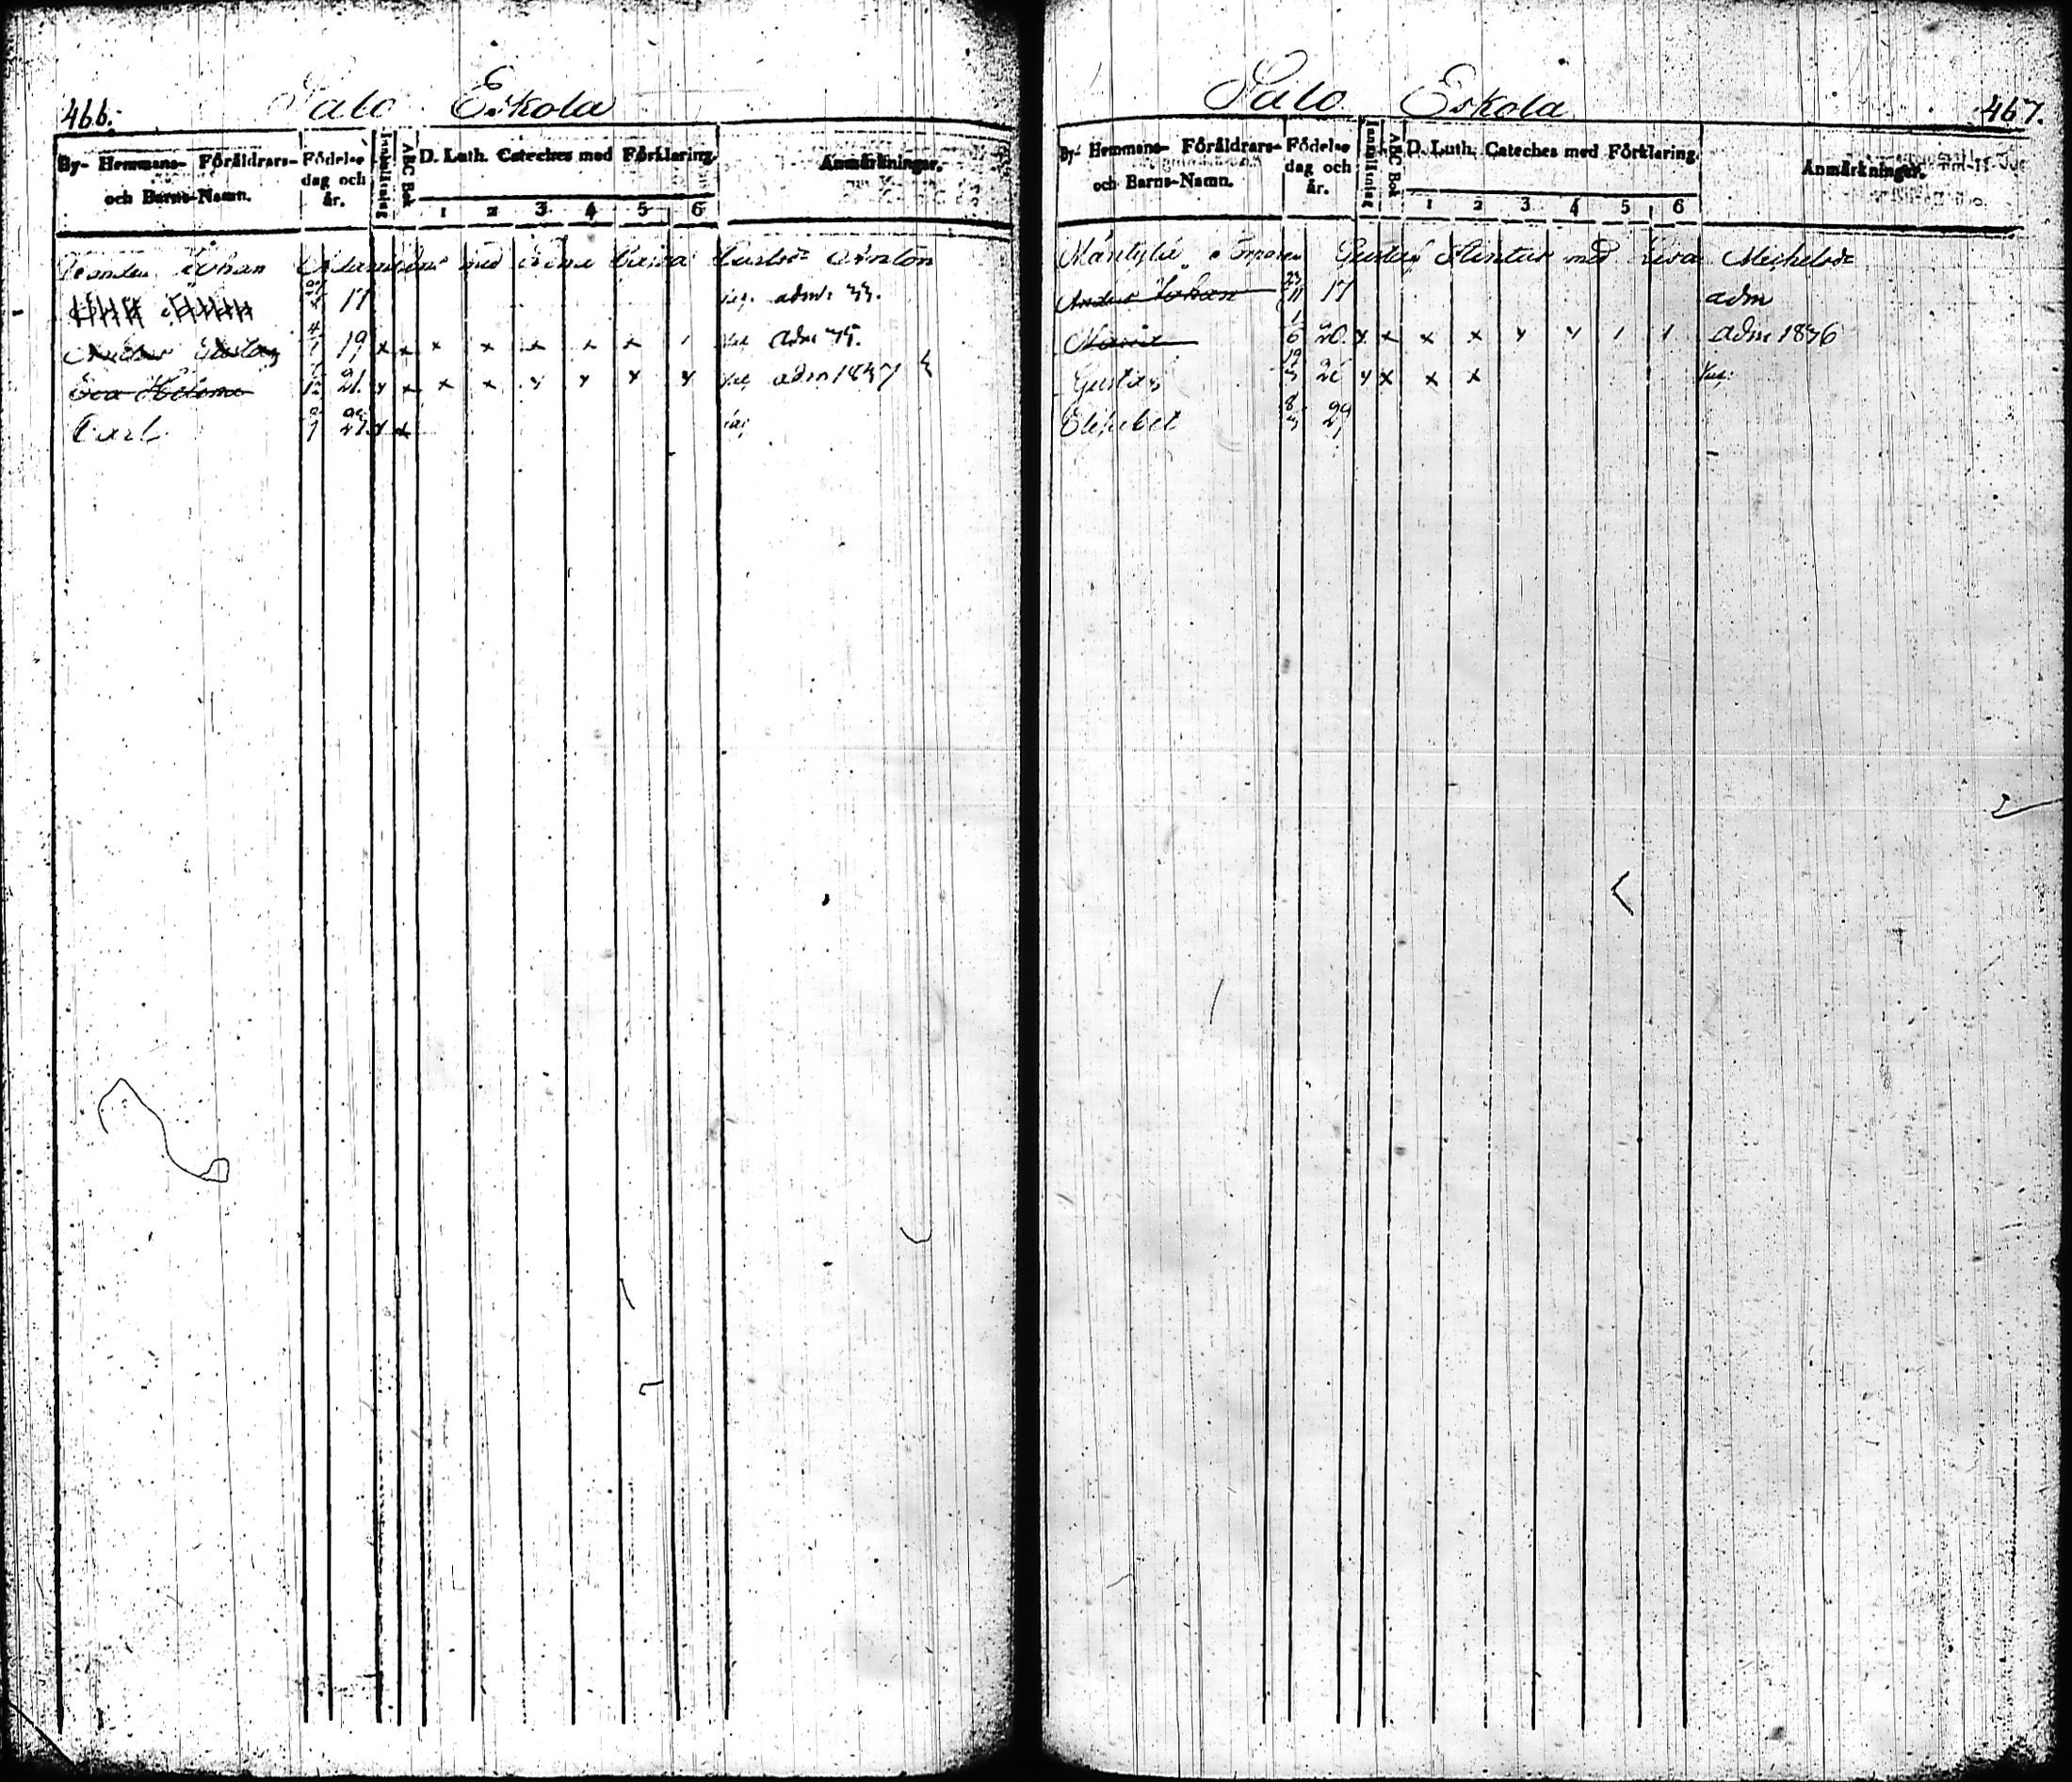 466. Salo Eskola
By- Hemmans- Föräldrars- och Barns-Namn. Födelse dag och år. Innanläsning ABC Bok D. Luth. Cateches med Förklaring. 1 2 3 4 5 6 Anmärkningar.
Johan med Anton
17 adm: 33.
Gustaf 4 19 x x x x x x x adm 35.
Eva Helena 21 x x x x x x x x adm 1837
Carl 27 x x
Salo Eskola 467.
By- Hemmans- Föräldrars- och Barns-Namn. Födelse dag och år. Innanläsning ABC Bok D. Luth. Cateches med Förklaring. 1 2 3 4 5 6 Anmärkningar.
Mäntylä Gustaf med Lisa Michelsdr
Anders Johan 23/11 17 adm
Maria 1/6 20. x x x x x x 1 1 adm 1836
Gustaf 19 26 x x x x
Elisabet 8 29